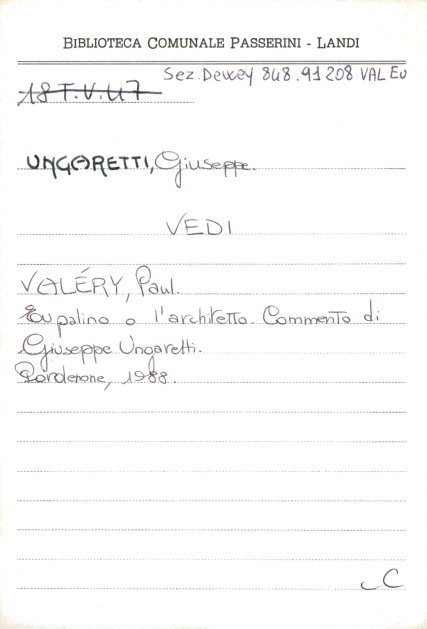 BIBLIOTECA COMUNALE PASSERINI - LANDI
Sez. Dewey 848.91208 VAL Eu
18 T.V.47
UNGARETTI, Giuseppe.
VEDI
VALÉRY, Paul.
Eupalino o l'architetto. Commento di
Giuseppe Ungaretti.
Pordenone, 1988.
C